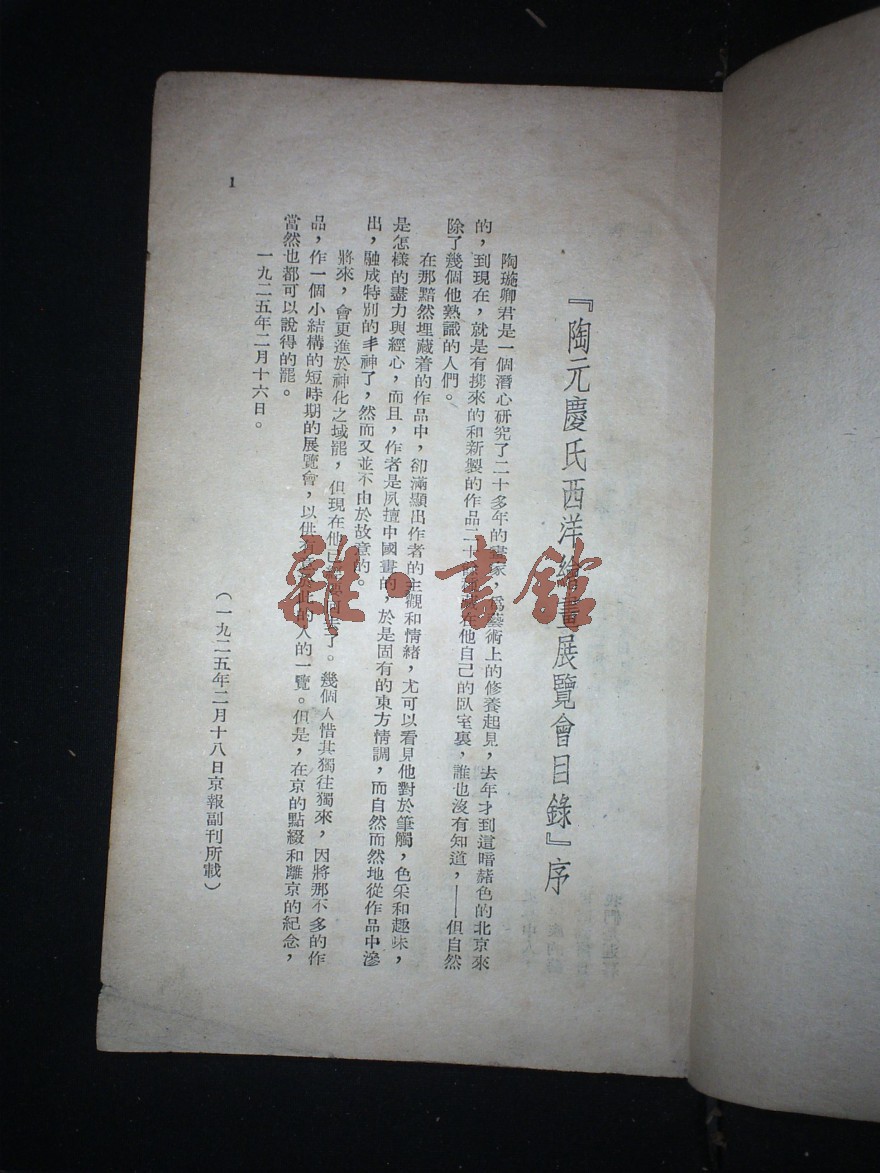 『陶元慶氏西洋繪畫展覽會目錄』序
陶璇卿君是一個潛心研究了二十多年的畫家，爲藝術上的修養起見，去年才到這暗赭色的北京來
的，到現在，就是有携來的和新製的作品二十餘種藏在他自己的臥室裏，誰也沒有知道，——但自然
除了幾個他熟識的人們。
在那黯然埋藏着的作品中，卻滿顯出作者的主觀和情緒，尤可以看見他對於筆觸，色采和趣味，
是怎樣的盡力與經心，而且，作者是夙擅中國畫的，於是固有的東方情調，又自然而然地從作品中滲
出，融成特別的丰神了，然而又並不由於故意的。
將來，會更進於神化之域罷，但現在他已經要回去了。幾個人惜其獨往獨來，因將那不多的作
品，作一個小結構的短時期的展覽會，以供有意於此的人的一覽。但是，在京的點綴和離京的紀念，
當然也都可以說得的罷。
一九二五年二月十六日。
（一九二五年二月十八日京報副刊所載）
1
雜·書館